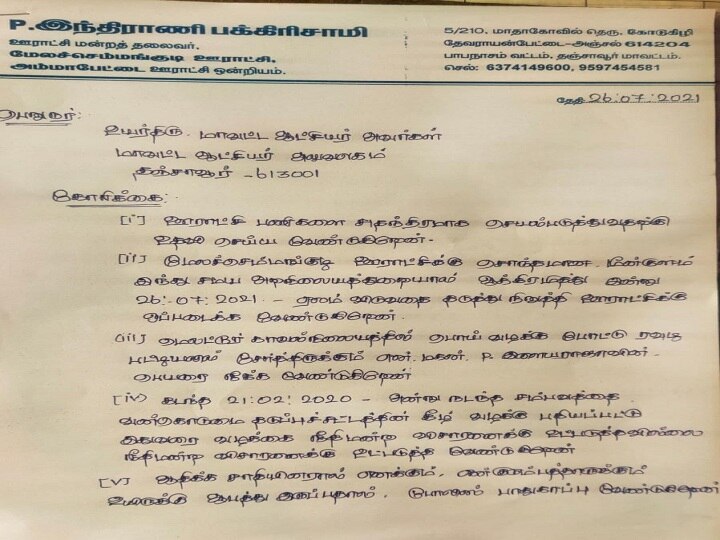 P.இந்திராணி பக்கிரிசாமி
ஊராட்சி மன்றத் தலைவர்.
மேலச்செம்மங்குடி ஊராட்சி,
அம்மாபேட்டை ஊராட்சி ஒன்றியம்.
5/210, மாதாகோவில் தெரு, கோடுகிழி
தேவராயன்பேட்டை-அஞ்சல் 614204
பாபநாசம் வட்டம், தஞ்சாவூர் மாவட்டம்.
செல்: 6374149600, 9597454581
தேதி 26:07:2021
பெறுநர்:
உயர்திரு. மாவட்ட ஆட்சியர் அவர்கள்
மாவட்ட ஆட்சியர் அலுவலகம்
தஞ்சாவூர் - 613001
கோரிக்கை:
[i] ஊராட்சி பணிகளை சுதந்திரமாக செயல்படுத்துவதற்கு
உதவி செய்ய வேண்டுகிறேன்.
[ii] மேலச்செம்மங்குடி ஊராட்சிக்கு சொந்தமான மீன்குளம்
இந்து சமய அறநிலையத்துறையால் ஆக்கிரமித்து அன்னு
26:07:2021 - ஏலம் விடுவதை தடுத்து நிறுத்தி ஊராட்சிக்கு
ஒப்படைக்க வேண்டுகிறேன்.
(iii) மெலட்டூர் காவல்நிலையத்தில் பொய் வழக்கு போட்டு ரவுடி
பட்டியலில் சேர்த்திருக்கும் என் மகன். P. இளையராஜாவின்.
பெயரை நீக்க வேண்டுகிறேன்
[iv] கடந்த 21:02:2020 - அன்னு நடந்த சம்பவத்தை
வன்கொடுமை தடுப்புச்சட்டத்தின் கீழ் வழக்கு பதியப்பட்டு
இதுவரை வழக்கை நீதிமன்ற விசாரணைக்கு உட்படுத்தவில்லை
நீதிமன்ற விசாரணைக்கு உட்படுத்த வேண்டுகிறேன்
[v] ஆதிக்க சாதியினரால் எனக்கும், என்குடும்பத்தாருக்கும்
உயிருக்கு ஆபத்து இருப்பதால், போலீஸ் பாதுகாப்பு வேண்டுகிறேன்